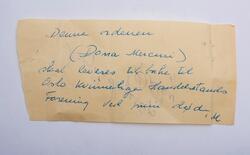 Denne ordenen
(Dona Mercuri)
skal leveres tilbake til
Oslo Kvinnelige Handelsstands
Forening ved min død.